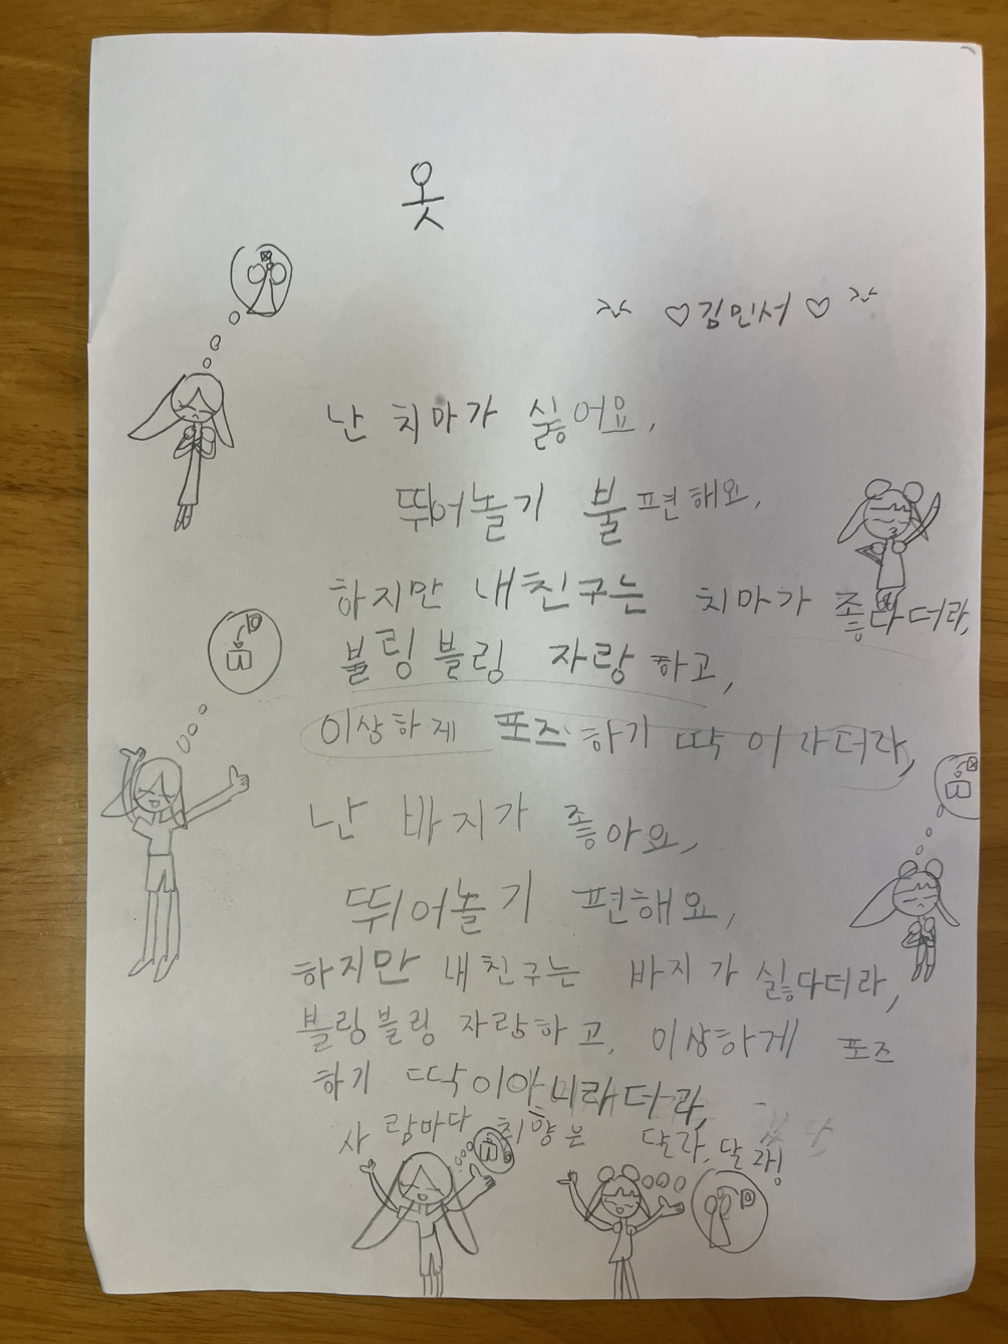 옷
♡김민서♡
난 치마가 싫어요,
뛰어놀기 불편해요,
하지만 내친구는 치마가 좋다더라,
블링블링 자랑하고,
이상하게 포즈하기 딱 이라더라,
난 바지가 좋아요,
뛰어놀기 편해요,
하지만 내친구는 바지가 싫다더라,
블링블링 자랑하고, 이상하게 포즈
하기 딱이아니라더라,
사람마다 취향은 달라, 달라!